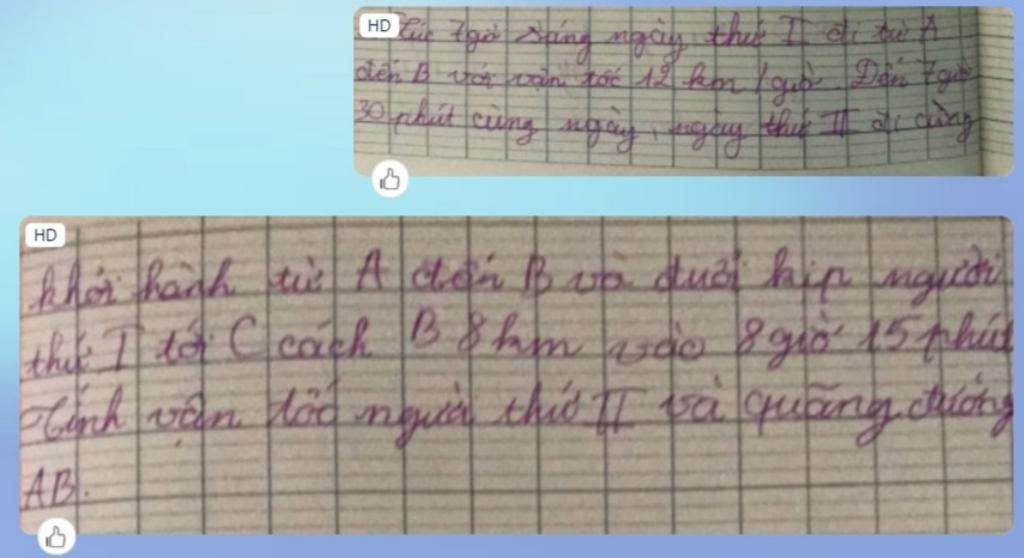 HD
Lúc 7giờ sáng ngày thứ I đi từ A
đến B với vận tốc 12 km/giờ. Đến 7giờ
30 phút cùng ngày, ngày thứ II đi cũng
HD
khởi hành từ A đến B và đuổi kịp người
thứ I tới C cách B 8km vào 8giờ 15 phút
Tính vận tốc người thứ II và quãng đường
AB.